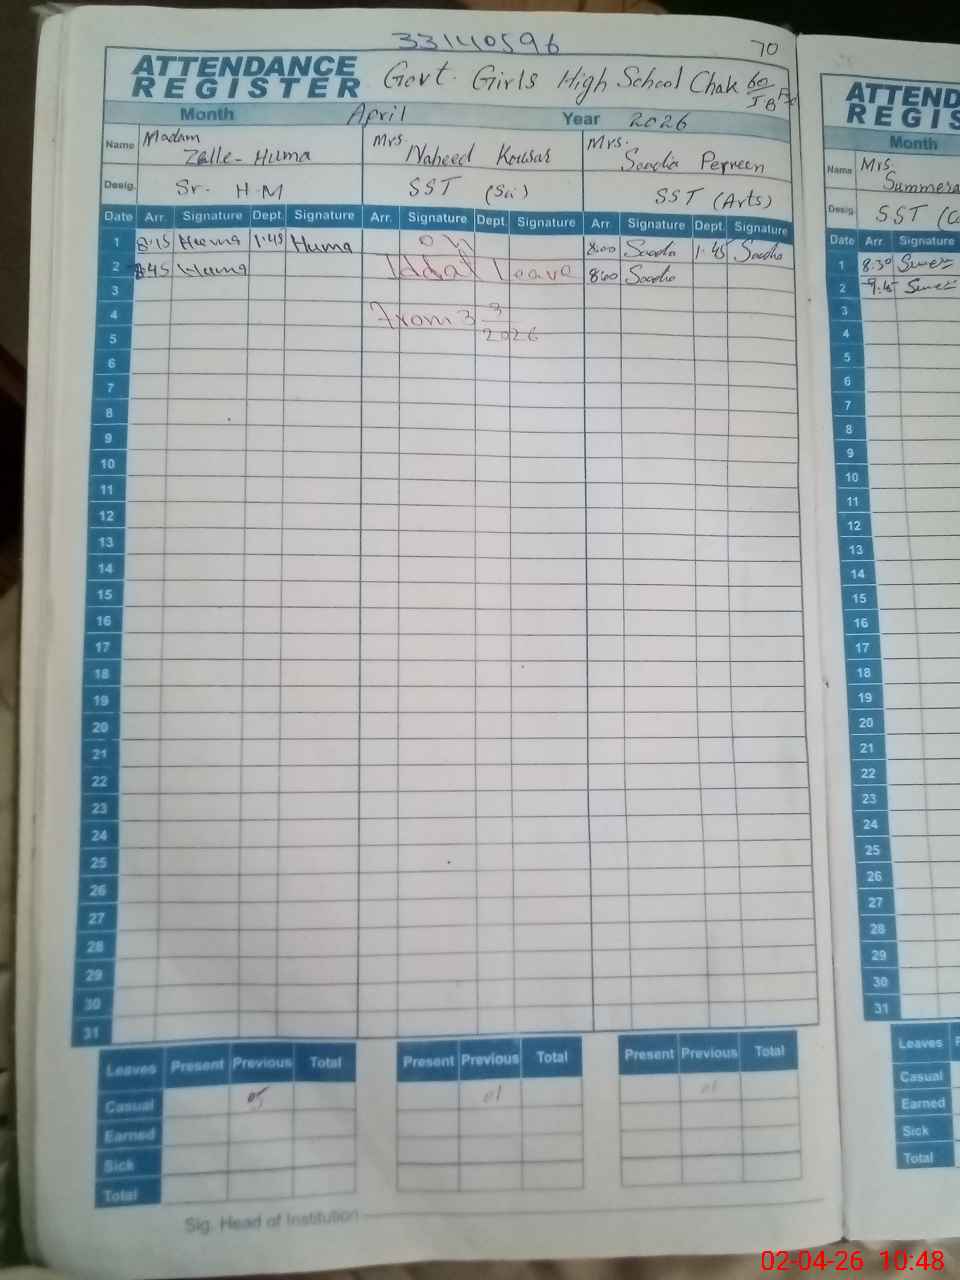 33140596
70
ATTENDANCE REGISTER Govt. Girls High School Chak 60/JB
Month April Year 2026
Name Madam Zille-Huma Mrs. Naheed Kousar Mrs. Saadia Perveen
Desig. Sr. H.M SST (Sci) SST (Arts)
Date Arr. Signature Dept. Signature Arr. Signature Dept. Signature Arr. Signature Dept. Signature
1 8:15 Huma 1:45 Huma on 8:00 Saadia 1:45 Saadia
2 8:45 Huma Iddat leave 8:00 Saadia
3
4 From 3 3
5 2026
6
7
8
9
10
11
12
13
14
15
16
17
18
19
20
21
22
23
24
25
26
27
28
29
30
31
Leaves Present Previous Total Present Previous Total Present Previous Total
Casual 05 01 01
Earned
Sick
Total
Sig. Head of Institution
ATTEND
REGIS
Month
Name Mrs. Summera
Desig. SST (Co
Date Arr. Signature
1 8:30
2 9:45
3
4
5
6
7
8
9
10
11
12
13
14
15
16
17
18
19
20
21
22
23
24
25
26
27
28
29
30
31
Leaves P
Casual
Earned
Sick
Total
02-04-26 10:48